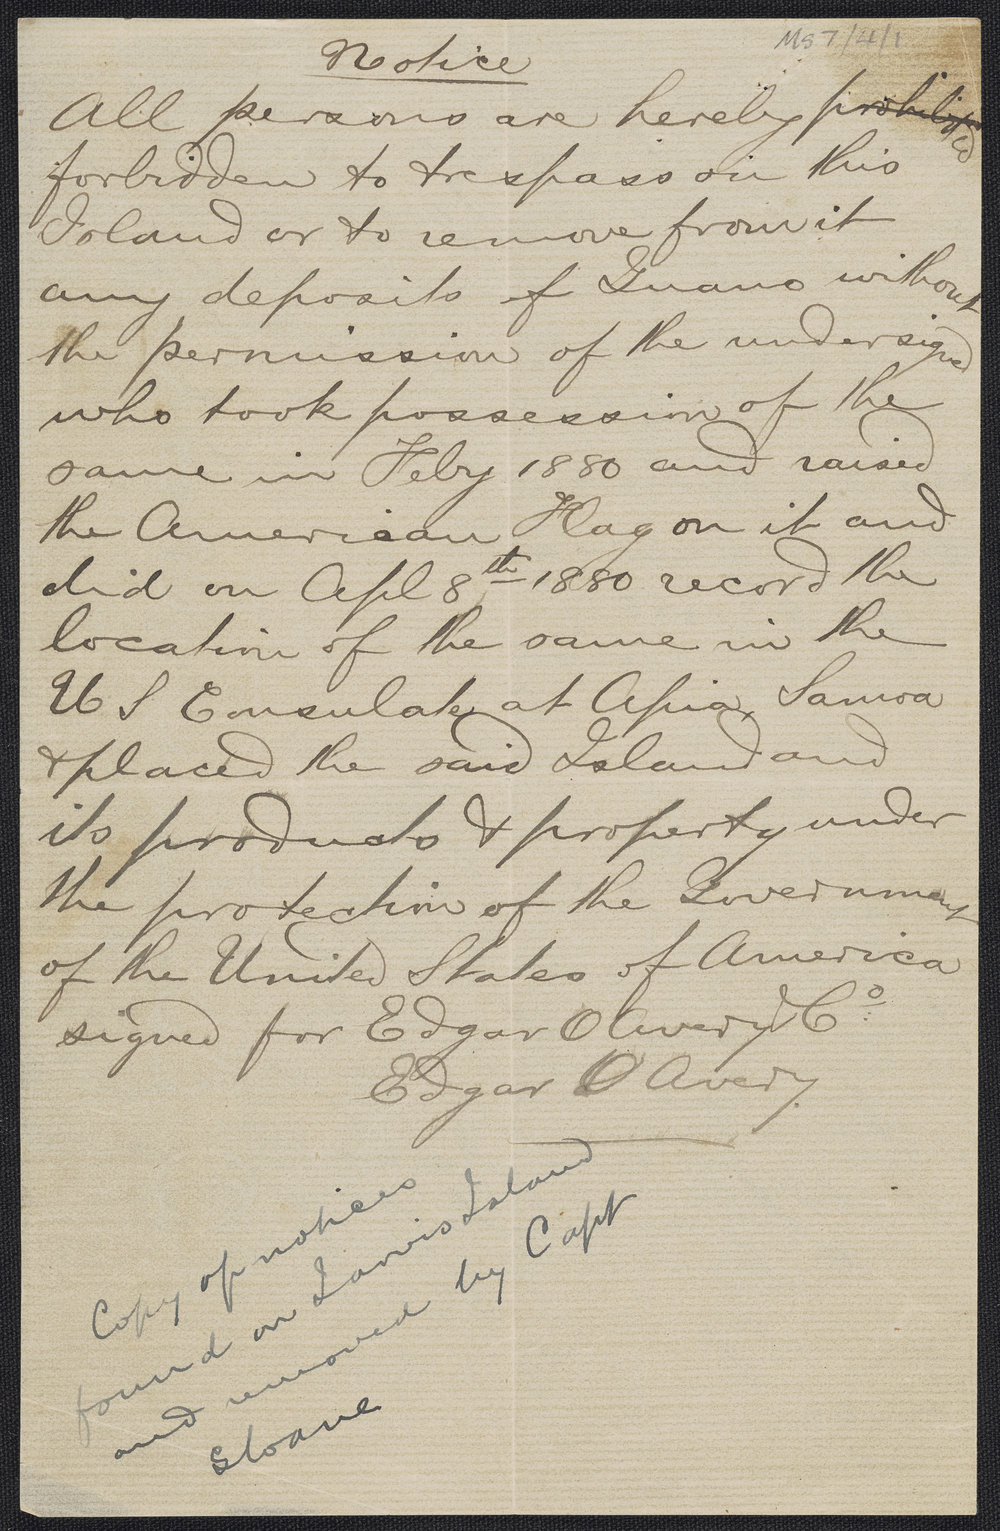 Ms 7/4/1
Notice
All persons are hereby prohibited
forbidden to trespass on this
Island or to remove from it
any deposits of Guano without
the permission of the undersigned
who took possession of the
same in Feby 1880 and raised
the American Flag on it and
did on Apl 8th 1880 record the
location of the same in the
U S Consulate at Apia, Samoa
& placed the said Island and
its products & property under
the protection of the Government
of the United States of America
signed for Edgar O Avery & Co
Edgar O Avery
Copy of notices
found on Jarvis Island
and removed by Capt
Sloane